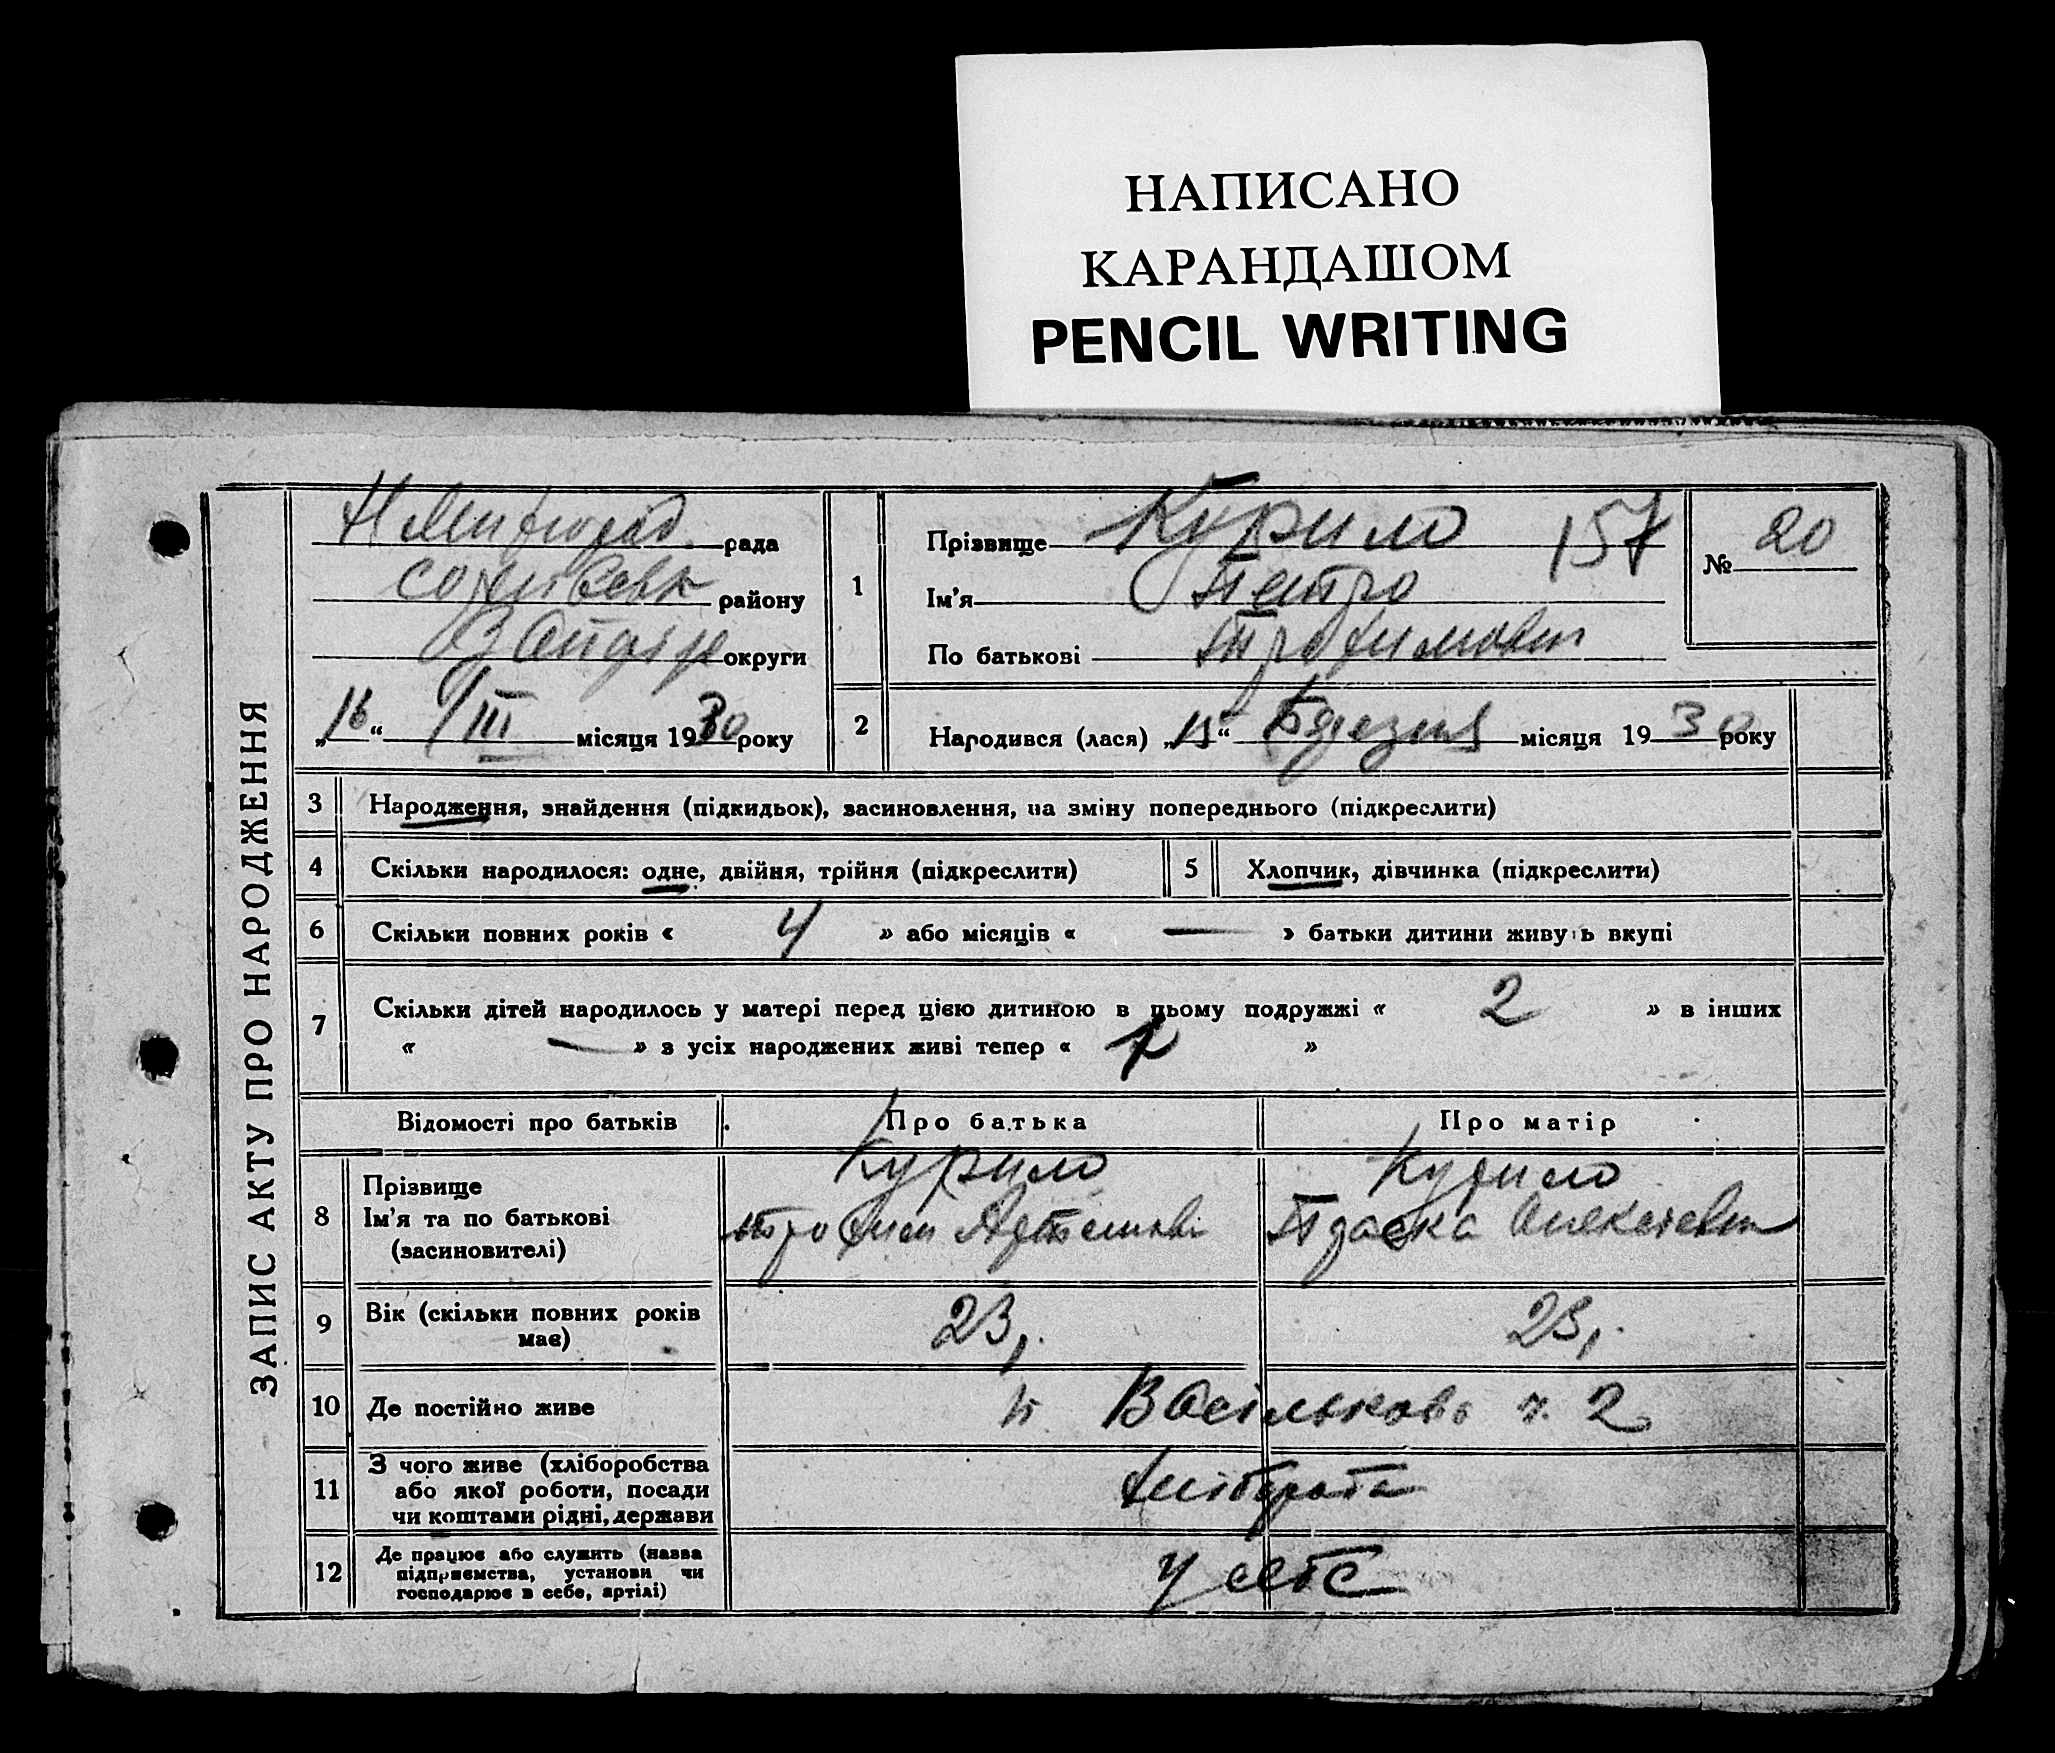 НАПИСАНО
КАРАНДАШОМ
PENCIL WRITING
ЗАПИС АКТУ ПРО НАРОДЖЕННЯ
рада
району
округи
„16“ III місяця 1930 року
1
Прізвище Курило 157
Ім'я Петро
По батькові Трофимович
№ 20
2
Народився (лася) „15“ Березня місяця 1930 року
3 Народження, знайдення (підкидьок), засиновлення, на зміну попереднього (підкреслити)
4 Скільки народилося: одне, двійня, трійня (підкреслити)
5 Хлопчик, дівчинка (підкреслити)
6 Скільки повних років « 4 » або місяців « — » батьки дитини живуть вкупі
7 Скільки дітей народилось у матері перед цією дитиною в цьому подружжі « 2 » в інших
« — » з усіх народжених живі тепер « »
Відомості про батьків Про батька Про матір
8 Прізвище
Ім'я та по батькові
(засиновителі)
Курило
Трофим Артемові
Курило
Параска Олексіевн
9 Вік (скільки повних років
має)
23, 23,
10 Де постійно живе
Васільковь 2
11 З чого живе (хліборобства
або якої роботи, посади
чи коштами рідні, держави
хліборобс
12 Де працює або служить (назва
підприємства, установи чи
господарює в себе, артілі)
У себе